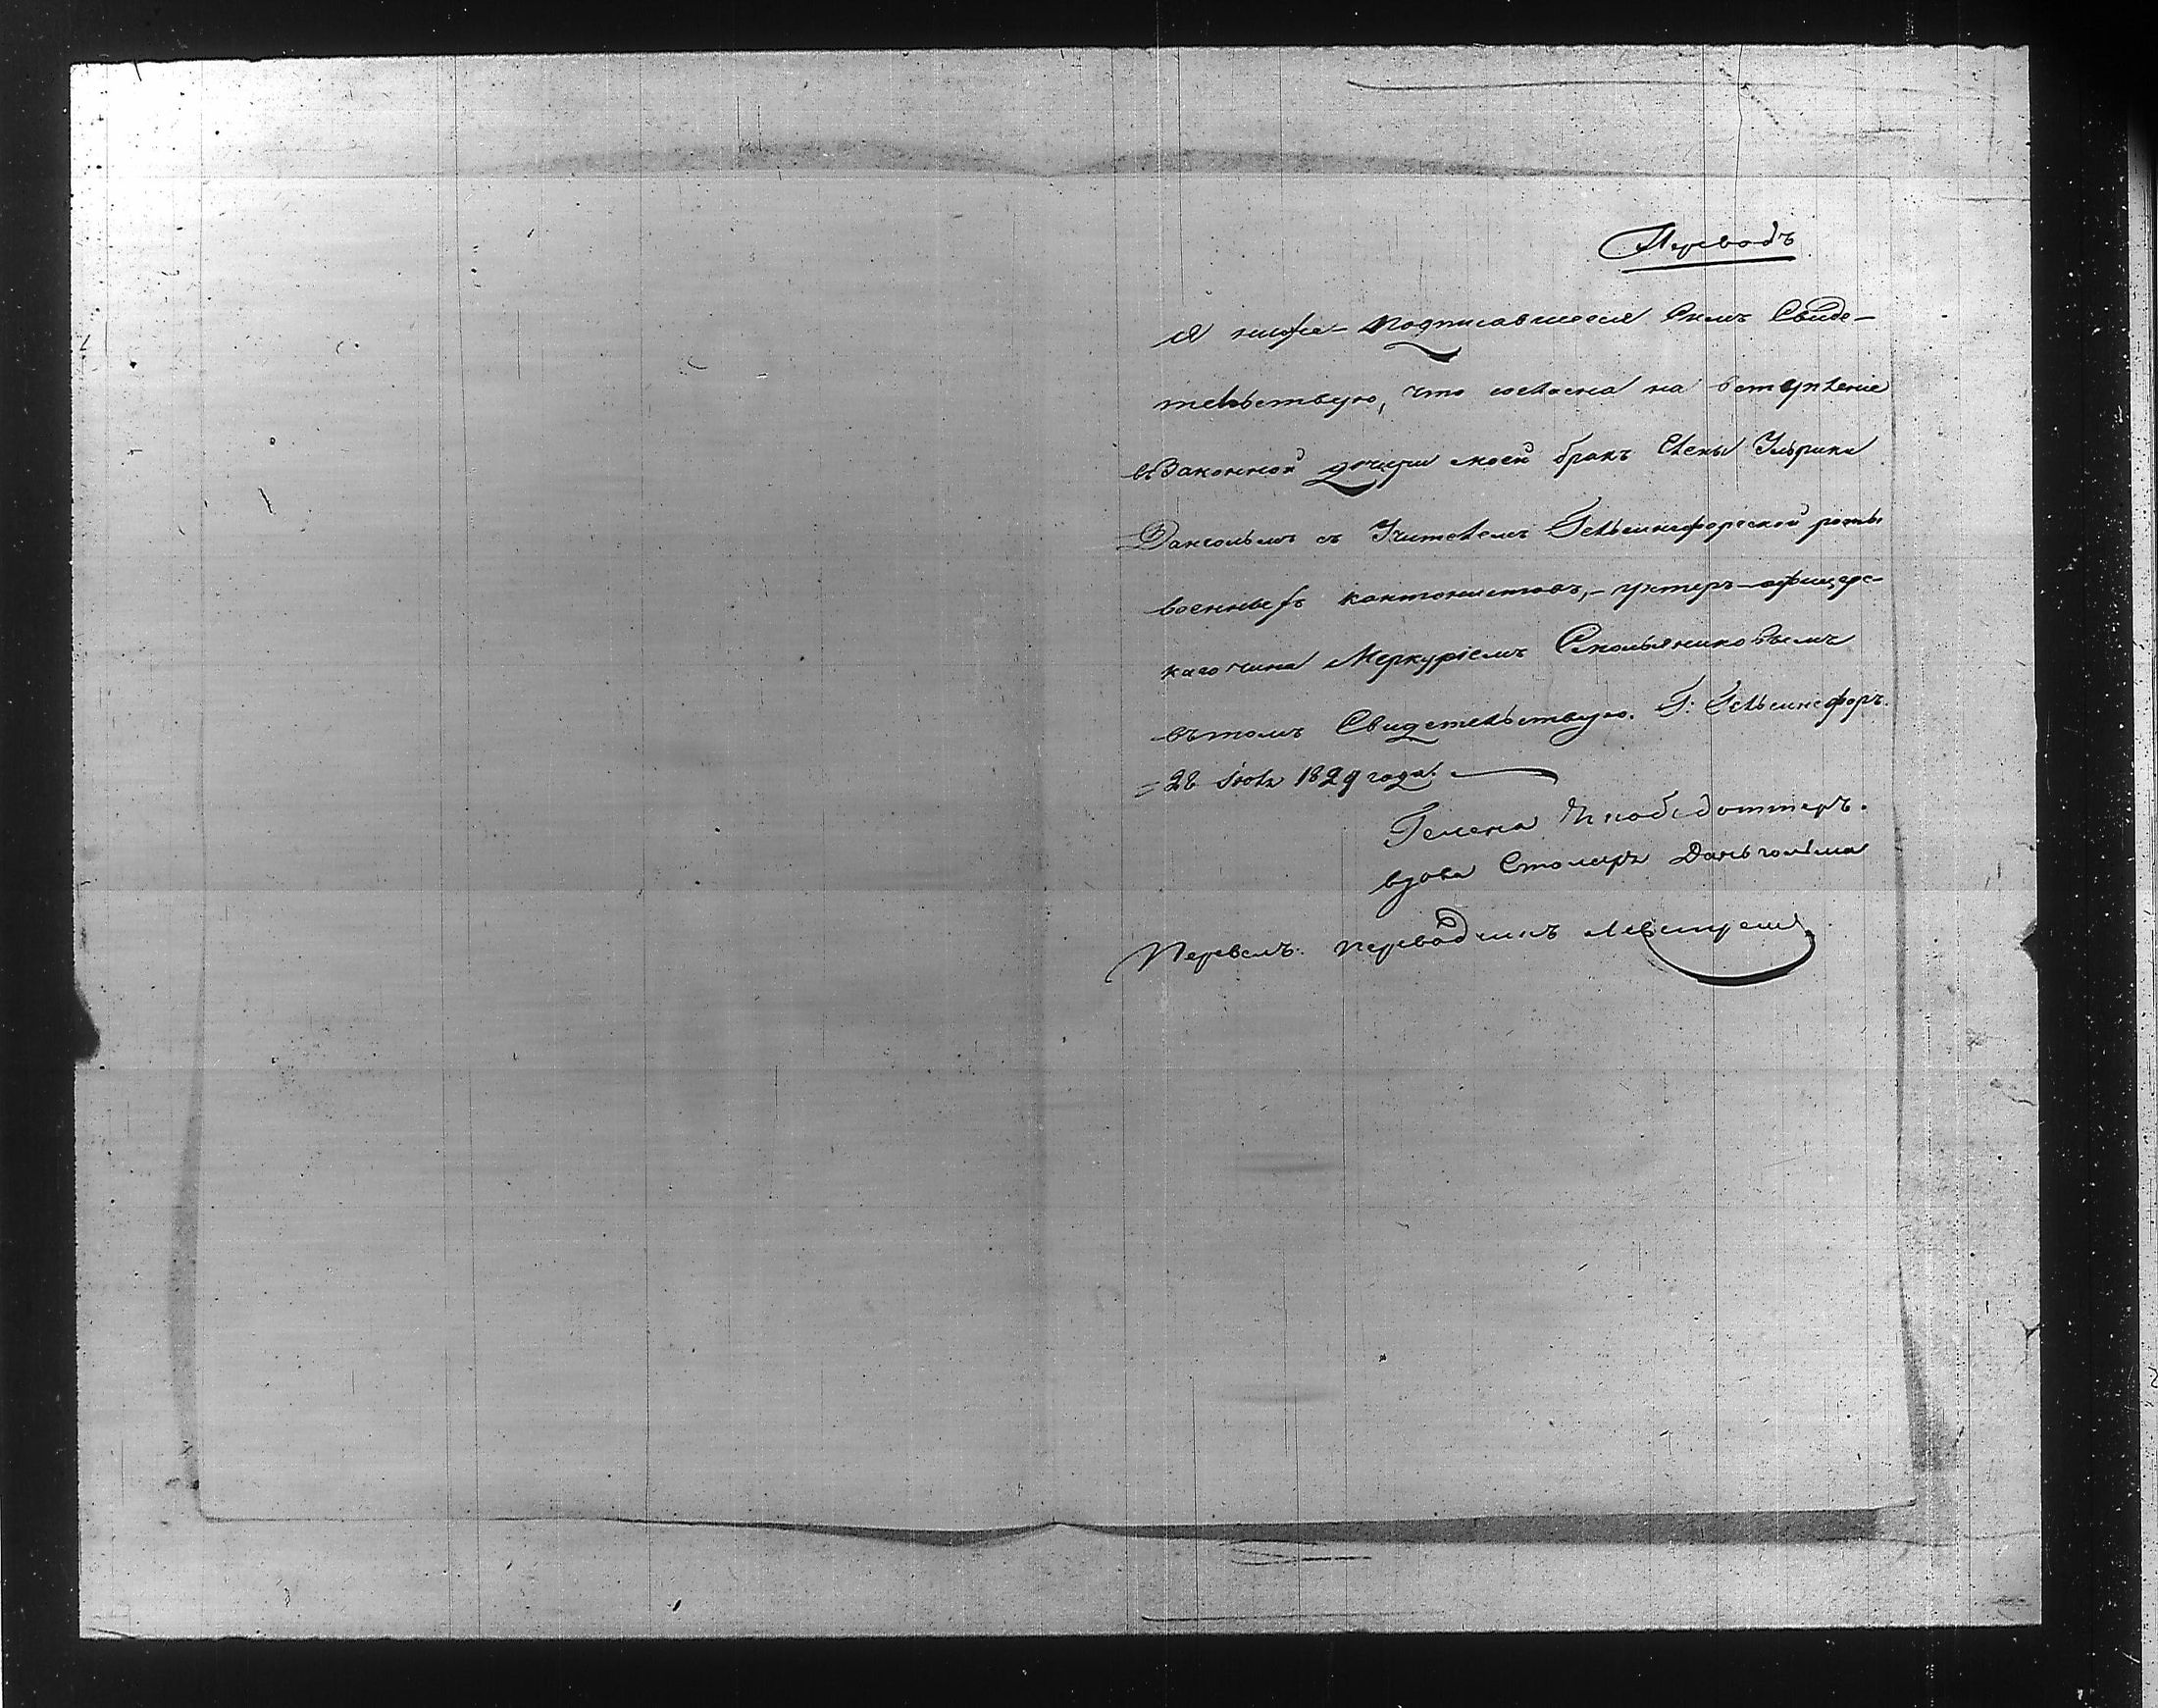 Переводъ
Я ниже-подписавшаяся симъ Свиде-
тельствую, что согласна на вступленіе
въ Законной дочери моей бракъ Елены Ульрики
Дангольмъ съ Учителемъ Гельсингфорской роты
военныхъ кантонистовъ,- унтеръ-офицерс-
каго чина Меркуріемъ Смольяниковымъ
въ томъ Свидетельствую. Г: Гельсингфоръ.
28 Іюля 1829 года.
Гелена Якобсдоттеръ.
вдова Столяра Даньгольма
Перевелъ: переводчикъ